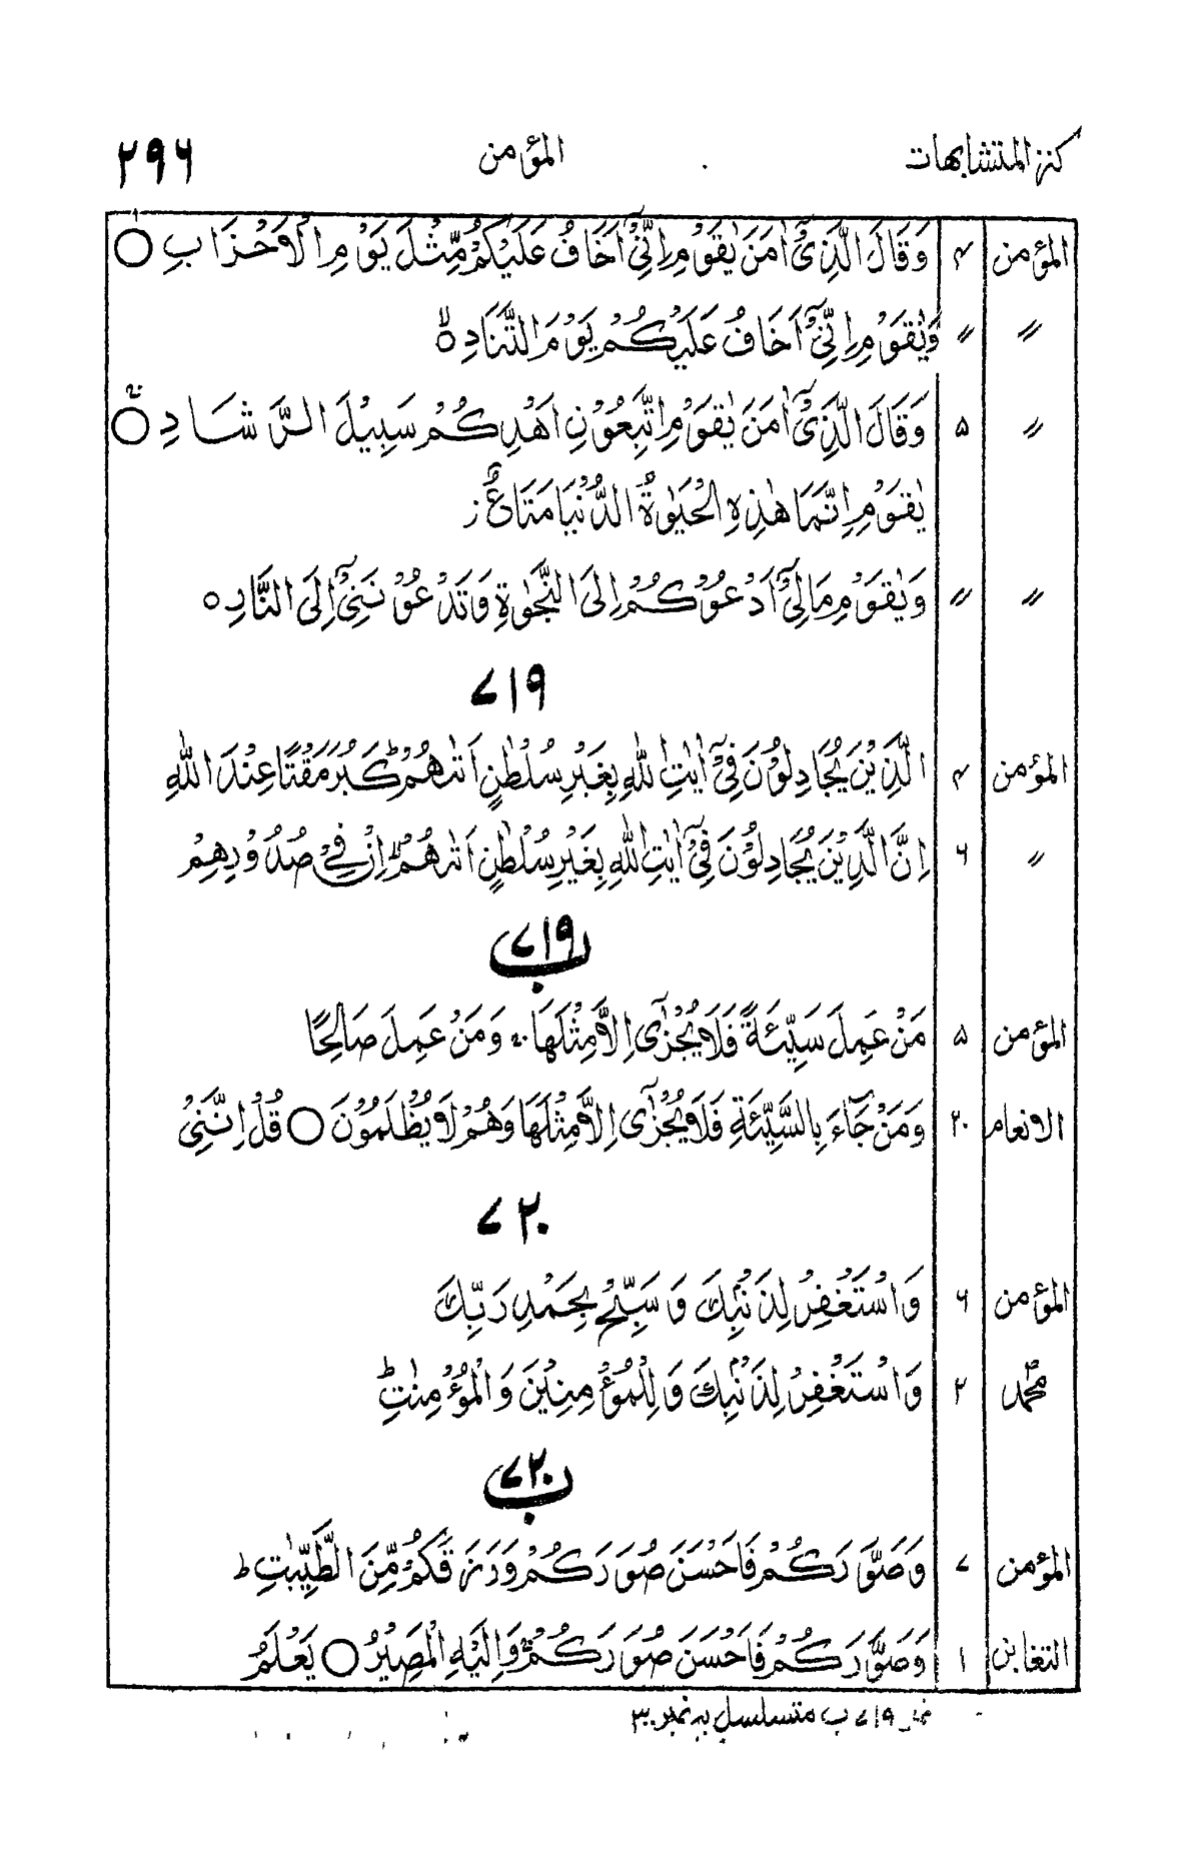 كنز المتشابهات المؤمن ۲۹۶
المؤمن ۴ وَقَالَ الَّذِیْۤ اٰمَنَ یٰقَوْمِ اِنِّیْۤ اَخَافُ عَلَیْكُمْ مِّثْلَ یَوْمِ الْاَحْزَابِ ○
〃 〃 وَیٰقَوْمِ اِنِّیْۤ اَخَافُ عَلَیْكُمْ یَوْمَ التَّنَادِ ○ۙ
〃 ۵ وَقَالَ الَّذِیْۤ اٰمَنَ یٰقَوْمِ اتَّبِعُوْنِ اَهْدِكُمْ سَبِیْلَ الرَّشَادِ ○ۚ
یٰقَوْمِ اِنَّمَا هٰذِهِ الْحَیٰوةُ الدُّنْیَا مَتَاعٌ ز
〃 〃 وَیٰقَوْمِ مَا لِیْۤ اَدْعُوْكُمْ اِلَی النَّجٰوةِ وَتَدْعُوْنَنِیْۤ اِلَی النَّارِ ○
۷۱۹
المؤمن ۴ الَّذِیْنَ یُجَادِلُوْنَ فِیْۤ اٰیٰتِ اللّٰهِ بِغَیْرِ سُلْطٰنٍ اَتٰىهُمْ ؕ كَبُرَ مَقْتًا عِنْدَ اللّٰهِ
〃 ۶ اِنَّ الَّذِیْنَ یُجَادِلُوْنَ فِیْۤ اٰیٰتِ اللّٰهِ بِغَیْرِ سُلْطٰنٍ اَتٰىهُمْ ۙ اِنْ فِیْ صُدُوْرِهِمْ
۷۱۹ ب
المؤمن ۵ مَنْ عَمِلَ سَیِّئَةً فَلَا یُجْزٰۤی اِلَّا مِثْلَهَا ۚ وَمَنْ عَمِلَ صَالِحًا
الانعام ۲۰ وَمَنْ جَآءَ بِالسَّیِّئَةِ فَلَا یُجْزٰۤی اِلَّا مِثْلَهَا وَهُمْ لَا یُظْلَمُوْنَ ○ قُلْ اِنَّنِیْ
۷۲۰
المؤمن ۶ وَاسْتَغْفِرْ لِذَنْۢبِكَ وَسَبِّحْ بِحَمْدِ رَبِّكَ
محمدؐ ۲ وَاسْتَغْفِرْ لِذَنْۢبِكَ وَلِلْمُؤْمِنِیْنَ وَالْمُؤْمِنٰتِ ؕ
۷۲۰ ب
المؤمن ۷ وَصَوَّرَكُمْ فَاَحْسَنَ صُوَرَكُمْ وَرَزَقَكُمْ مِّنَ الطَّیِّبٰتِ ط
التغابن ۱ وَصَوَّرَكُمْ فَاَحْسَنَ صُوَرَكُمْ ۚ وَاِلَیْهِ الْمَصِیْرُ ○ یَعْلَمُ
نمبر ۷۱۹ ب متسلسل بہ نمبر ۳۰